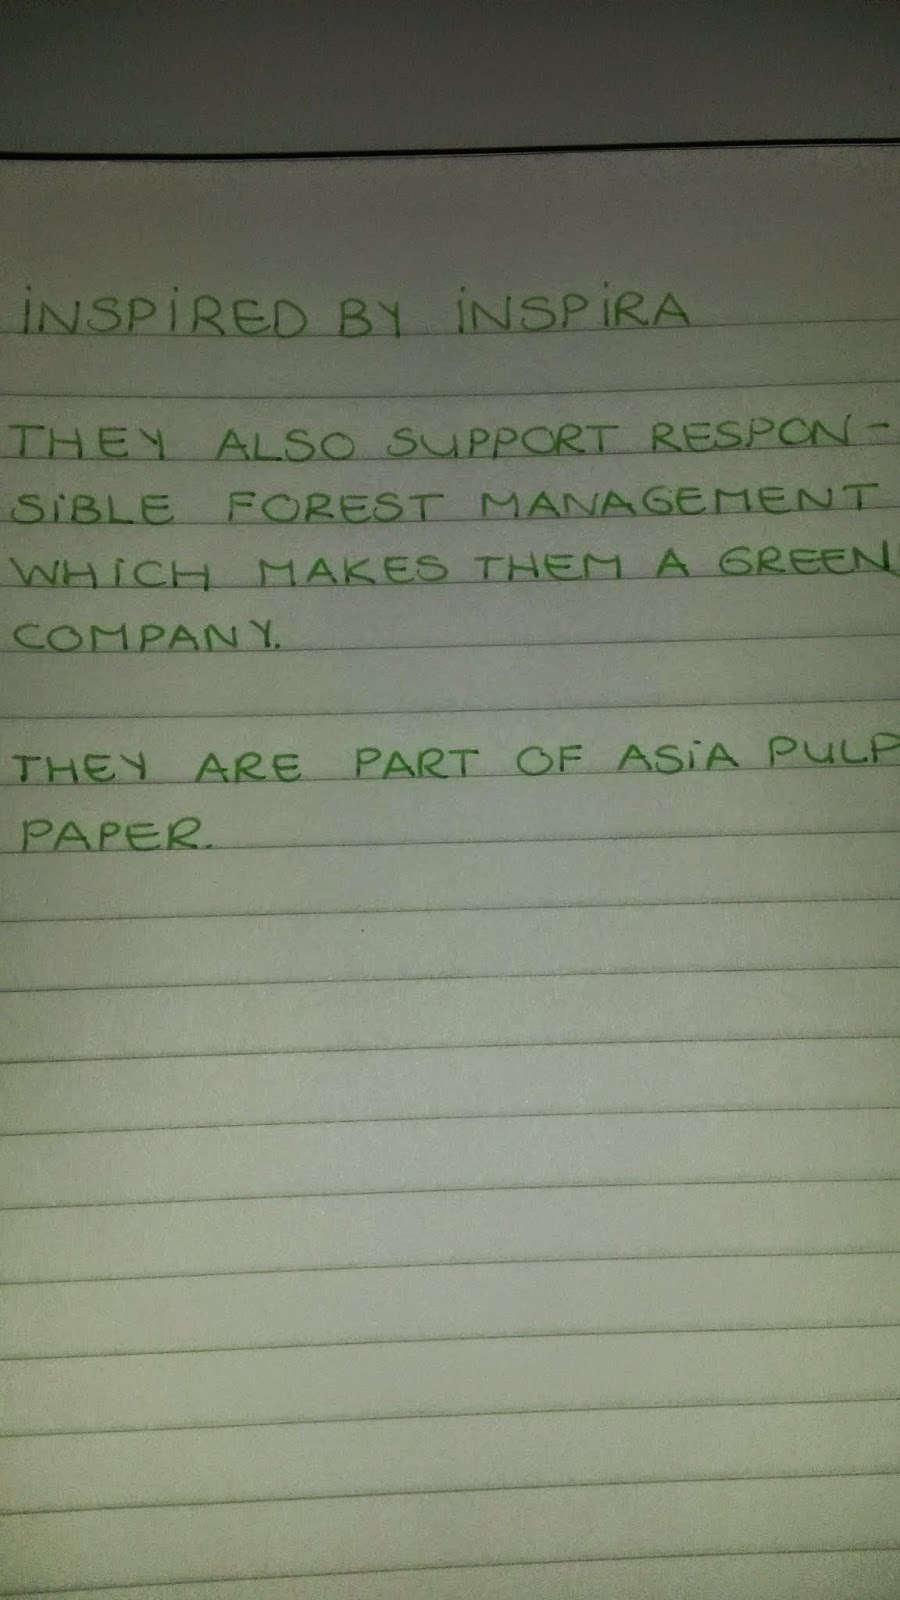 iNSPiRED BY iNSPiRA
THEY ALSO SUPPORT RESPON-
SiBLE FOREST MANAGEMENT
WHiCH MAKES THEM A GREEN
COMPANY.
THEY ARE PART OF ASiA PULP
PAPER.